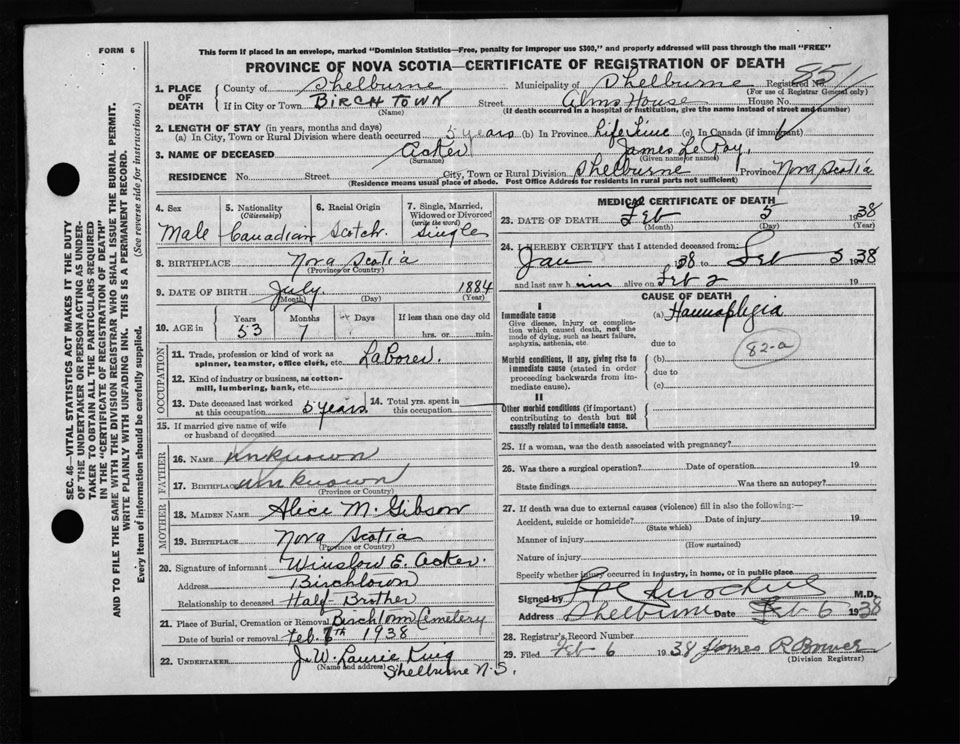 FORM 6
This form if placed in an envelope, marked "Dominion Statistics—Free, penalty for improper use $300," and properly addressed will pass through the mail "FREE"
PROVINCE OF NOVA SCOTIA—CERTIFICATE OF REGISTRATION OF DEATH
1. PLACE OF DEATH
County of Shelburne Municipality of Shelburne Registered No. 851
(For use of Registrar General only)
If in City or Town BIRCH TOWN Street Alms House House No.
(Name) (If death occurred in a hospital or institution, give the name instead of street and number)
2. LENGTH OF STAY (in years, months and days)
(a) In City, Town or Rural Division where death occurred 5 years (b) In Province Life Time (c) In Canada (if immigrant)
3. NAME OF DECEASED Acker James LeRoy.
(Surname) (Given name or names)
RESIDENCE No. Street City, Town or Rural Division Shelburne Province Nova Scotia
(Residence means usual place of abode. Post Office Address for residents in rural parts not sufficient)
4. Sex
Male
5. Nationality
(Citizenship)
Canadian
6. Racial Origin
Scotch.
7. Single, Married, Widowed or Divorced
(write the word)
Single
8. BIRTHPLACE Nova Scotia
(Province or Country)
9. DATE OF BIRTH July 1884
(Month) (Day) (Year)
10. AGE in
Years Months Days If less than one day old
53 7 hrs. or min.
OCCUPATION
11. Trade, profession or kind of work as spinner, teamster, office clerk, etc. Laborer.
12. Kind of industry or business, as cotton-mill, lumbering, bank, etc.
13. Date deceased last worked at this occupation 5 years
14. Total yrs. spent in this occupation
15. If married give name of wife or husband of deceased
FATHER
16. NAME Unknown
17. BIRTHPLACE Unknown
(Province or Country)
MOTHER
18. MAIDEN NAME Alice M. Gibson
19. BIRTHPLACE Nova Scotia
(Province or Country)
20. Signature of informant Winslow E. Acker.
Address Birchtown
Relationship to deceased Half Brother
21. Place of Burial, Cremation or Removal Birchtown Cemetery
Date of burial or removal Feb. 7th 1938
22. UNDERTAKER J. W. Laurie King
(Name and address) Shelburne N.S.
MEDICAL CERTIFICATE OF DEATH
23. DATE OF DEATH Feb 5 1938
(Month) (Day) (Year)
24. I HEREBY CERTIFY that I attended deceased from:
Jan 1938 to Feb 5 1938
and last saw him alive on Feb 2 19
CAUSE OF DEATH
I
Immediate cause
Give disease, injury or complication which caused death, not the mode of dying, such as heart failure, asphyxia, asthenia, etc.
(a) Haemaplegia
due to
82-a
Morbid conditions, if any, giving rise to immediate cause (stated in order proceeding backwards from immediate cause).
(b)
due to
(c)
II
Other morbid conditions (if important) contributing to death but not causally related to immediate cause.
25. If a woman, was the death associated with pregnancy?
26. Was there a surgical operation? Date of operation 19
State findings Was there an autopsy?
27. If death was due to external causes (violence) fill in also the following:—
Accident, suicide or homicide? Date of injury 19
(State which)
Manner of injury
(How sustained)
Nature of injury
Specify whether injury occurred in industry, in home, or in public place
Signed by M.D.
Address Shelburne Date Feb 6 1938
28. Registrar's Record Number
29. Filed Feb 6 1938 James R Bower
(Division Registrar)
SEC. 46—VITAL STATISTICS ACT MAKES IT THE DUTY OF THE UNDERTAKER OR PERSON ACTING AS UNDERTAKER TO OBTAIN ALL THE PARTICULARS REQUIRED IN THE "CERTIFICATE OF REGISTRATION OF DEATH" AND TO FILE THE SAME WITH THE DIVISION REGISTRAR WHO SHALL ISSUE THE BURIAL PERMIT.
WRITE PLAINLY WITH UNFADING INK. THIS IS A PERMANENT RECORD.
Every item of information should be carefully supplied. (See reverse side for instructions.)